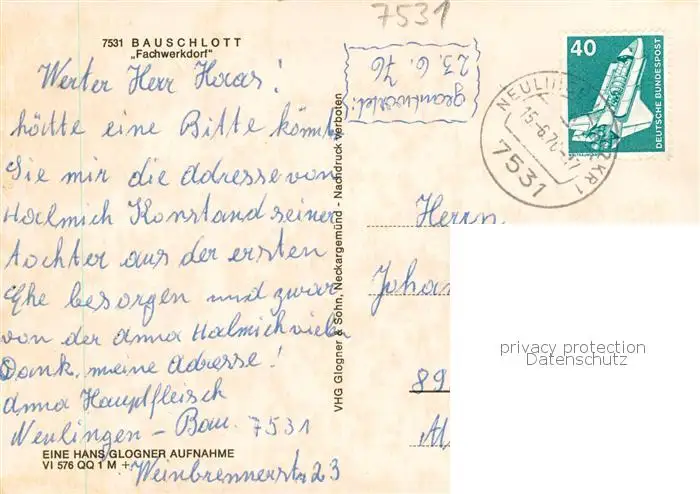 7531
7531 BAUSCHLOTT
„Fachwerkdorf"
Werter Herr Haas!
hätte eine Bitte könnt
Sie mir die Adresse von
Halmich Konstand seiner
tochter aus der ersten
Ehe besorgen und zwar
von der Anna Halmich vielen
Dank. meine Adresse!
Anna Hauptfleisch
Neulingen - Bau. 7531
Weinbrennerstr 23
EINE HANS GLOGNER AUFNAHME
VI 576 QQ 1 M +
VHG Glogner & Sohn, Neckargemünd - Nachdruck verboten
geantwortet:
23.6.76
40
DEUTSCHE BUNDESPOST
15-6.76
7531
Herrn
Joha
89
privacy protection
Datenschutz